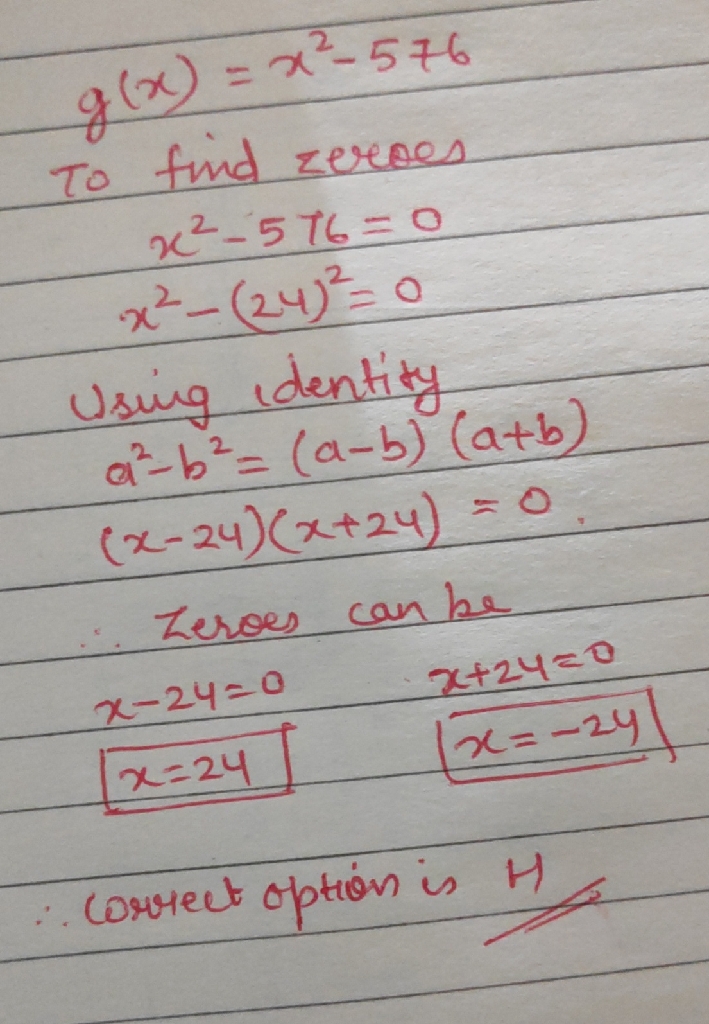 g(x) = x² - 576
To find zeroes
x² - 576 = 0
x² - (24)² = 0
Using identity
a² - b² = (a-b) (a+b)
(x-24)(x+24) = 0.
∴ Zeroes can be
x-24=0 x+24=0
x=24 x=-24
∴ correct option is H